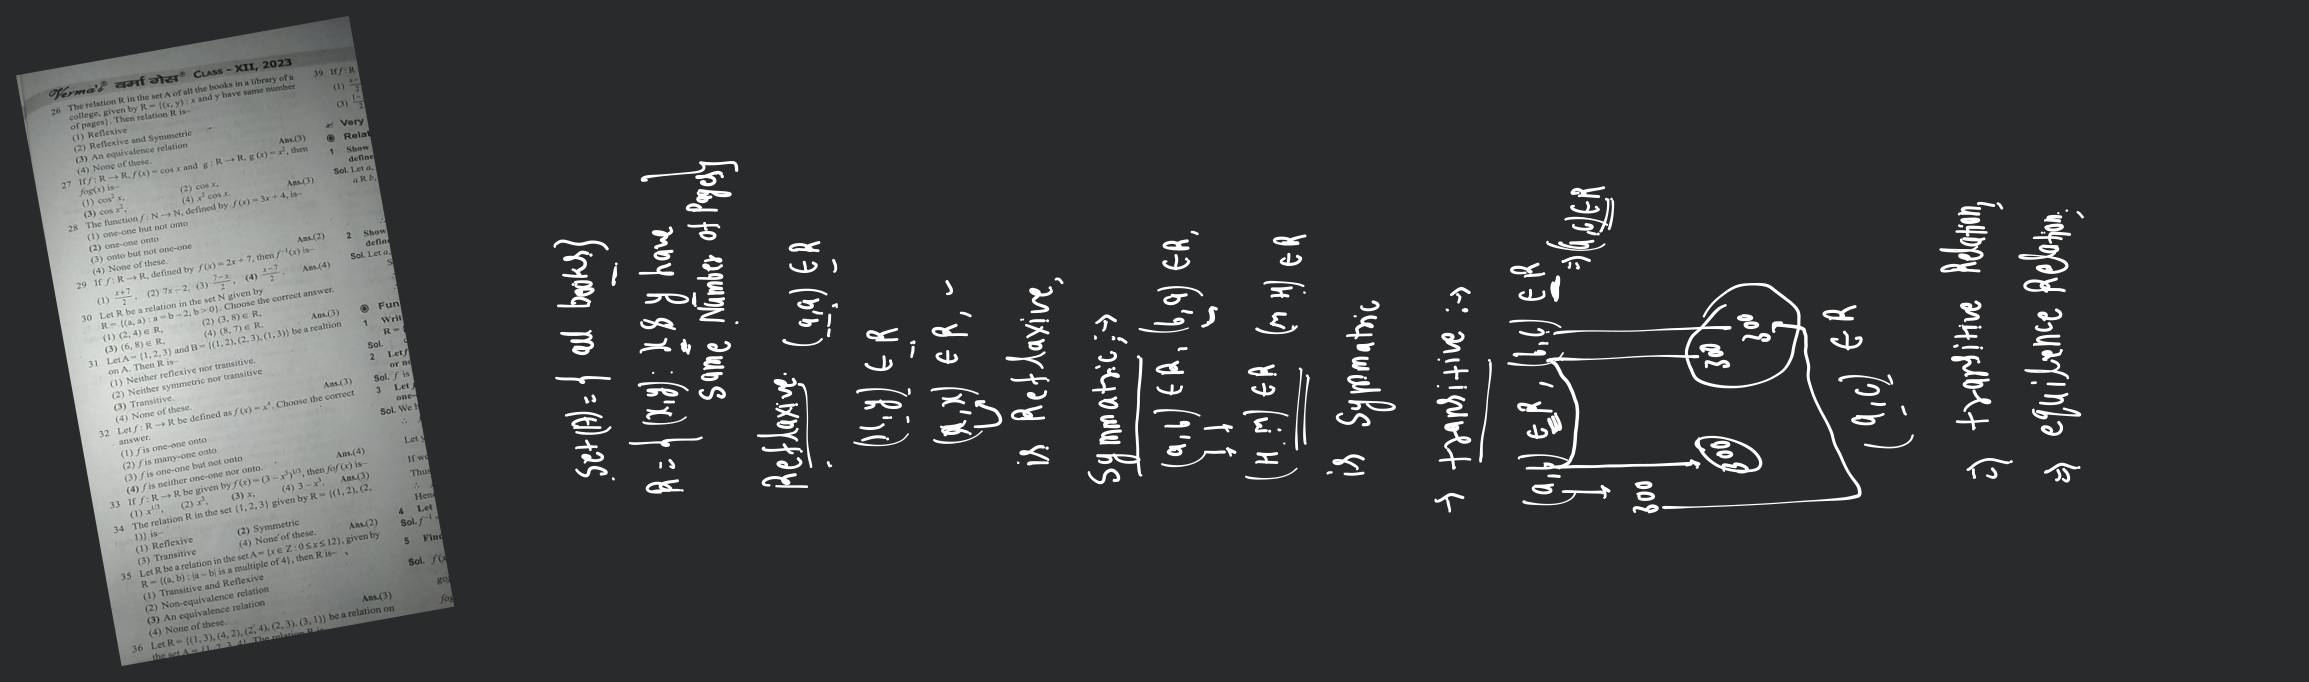 Verma's® वर्मा गेस® CLASS - XII, 2023
26 The relation R in the set A of all the books in a library of a
college, given by R = {(x, y) : x and y have same number
of pages}. Then relation R is–
(1) Reflexive
(2) Reflexive and Symmetric
(3) An equivalence relation
(4) None of these. Ans.(3)
27 If f : R → R, f(x) = cos x and g : R → R, g(x) = x², then
fog(x) is–
(1) cos² x, (2) cos x,
(3) cos x², (4) x² cos x. Ans.(3)
28 The function f : N → N, defined by f(x) = 3x + 4, is–
(1) one-one but not onto
(2) one-one onto
(3) onto but not one-one
(4) None of these. Ans.(2)
29 If f : R → R, defined by f(x) = 2x + 7, then f⁻¹(x) is–
(1) x+7/2, (2) 7x – 2, (3) 7–x/2, (4) x–7/2. Ans.(4)
30 Let R be a relation in the set N given by
R = {(a, a) : a = b – 2, b > 0}. Choose the correct answer.
(1) (2, 4) ∈ R, (2) (3, 8) ∈ R,
(3) (6, 8) ∈ R, (4) (8, 7) ∈ R. Ans.(3)
31 Let A = {1, 2, 3} and B = {(1, 2), (2, 3), (1, 3)} be a realtion
on A. Then R is–
(1) Neither reflexive nor transitive.
(2) Neither symmetric nor transitive
(3) Transitive.
(4) None of these. Ans.(3)
32 Let f : R → R be defined as f(x) = x⁴. Choose the correct
answer.
(1) f is one-one onto
(2) f is many-one onto
(3) f is one-one but not onto
(4) f is neither one-one nor onto. Ans.(4)
33 If f : R → R be given by f(x) = (3 – x³)^1/3, then fof(x) is–
(1) x^1/3, (2) x³, (3) x, (4) 3 – x³. Ans.(3)
34 The relation R in the set {1, 2, 3} given by R = {(1, 2), (2,
1)} is–
(1) Reflexive (2) Symmetric
(3) Transitive (4) None of these. Ans.(2)
35 Let R be a relation in the set A = {x ∈ Z : 0 ≤ x ≤ 12}, given by
R = {(a, b) : |a – b| is a multiple of 4}, then R is–
(1) Transitive and Reflexive
(2) Non-equivalence relation
(3) An equivalence relation
(4) None of these. Ans.(3)
36 Let R = {(1, 3), (4, 2), (2, 4), (2, 3), (3, 1)} be a relation on
39 If f : R
(1)
(3)
Very
Relat
1 Show
define
Sol. Let a,
a R b,
2 Show
defin
Sol. Let a,
Fun
1 Writ
R =
Sol.
2 Let f
or n
Sol. f is
3 Let
one-
Sol. We
Let y
If w
Thu
Hen
4 Let
Sol. f⁻¹
5 Find
Sol. f(x
go
fog
Set(A) = { all books}
R = { (x,y) : x & y have
same Number of Pages}
Reflaxive. (a,a) ∈ R
(x,y) ∈ R
(x,x) ∈ R,
is Reflaxive,
Symmatric :→
(a,b) ∈ R, (b,a) ∈ R,
(H M) ∈ R (M H) ∈ R
is Symmatric
→ transitive :→
(a,b) ∈ R, (b,c) ∈ R
⇒ (a,c) ∈ R
300 300 300 300
(a,c) ∈ R
⇒ transitive Relation,
⇒ equilence Relation.,